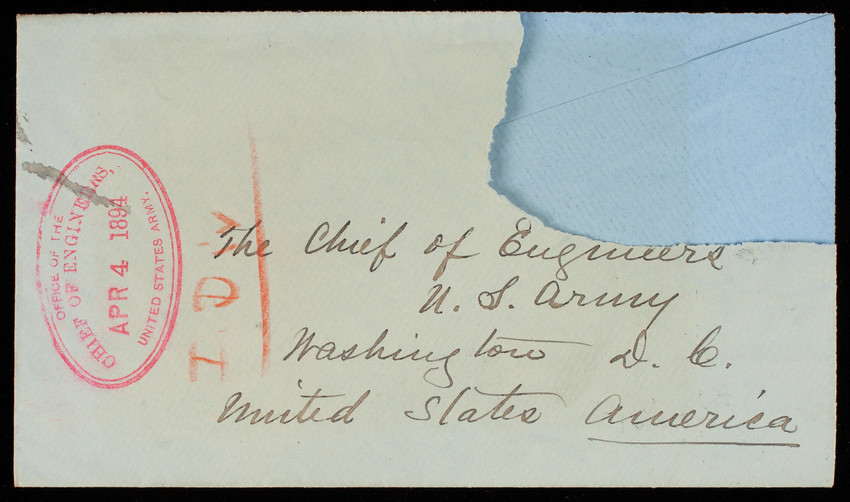 The Chief of Engineers
U. S. Army
Washington D. C.
United States America
OFFICE OF THE
CHIEF OF ENGINEERS,
APR 4 1894
UNITED STATES ARMY.